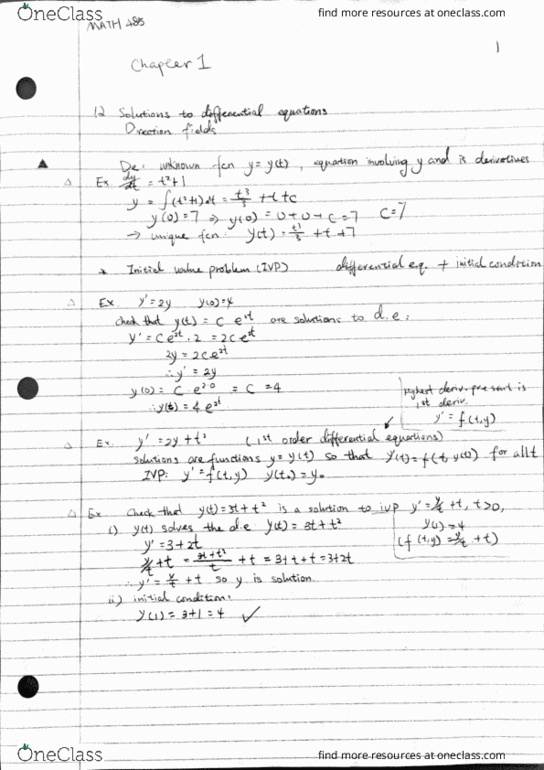 OneClass
find more resources at oneclass.com
MATH 485
1
Chapter 1
1.2 Solutions to differential equations
Direction fields
De: unknown fcn y = y(t), equation involving y and is derivatives
Ex dy/dt = t²+1
y = ∫(t²+1)dt = t³/3 + t + c
y(0)=7 ⇒ y(0) = 0+0+C=7 C=7
→ unique fcn: y(t) = t³/3 + t + 7
* Initial value problem (IVP) differential eq. + initial condition
Ex. y' = 2y y(0)=4
check that y(t) = C e²ᵗ are solutions to d.e:
y' = Ce²ᵗ·2 = 2Ce²ᵗ
2y = 2Ce²ᵗ
∴ y' = 2y
y(0) = C e²·⁰ = C = 4
∴ y(t) = 4e²ᵗ
highest deriv. present is
1st deriv.
y' = f(t,y)
Ex. y' = 2y + t² (1st order differential equations)
solutions are functions y = y(t) so that y'(t) = f(t, y(t)) for all t
IVP: y' = f(t,y) y(t₀) = y₀
Ex Check that y(t) = 3t + t² is a solution to ivp y' = y/t + t, t>0,
y(1) = 4
(f(t,y) = y/t + t)
i) y(t) solves the d.e y(t) = 3t + t²
y' = 3+2t
y/t + t = (3t+t²)/t + t = 3+t+t = 3+2t
∴ y' = y/t + t so y is solution.
ii) initial condition:
y(1) = 3+1 = 4 ✓
OneClass
find more resources at oneclass.com